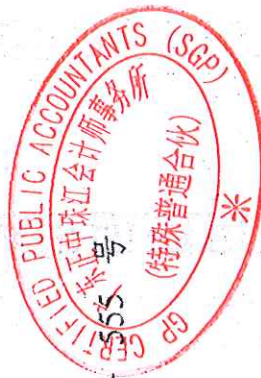 GP CERTIFIED PUBLIC ACCOUNTANTS (SGP)
东正中珠江会计师事务所
555 号
(特殊普通合伙)